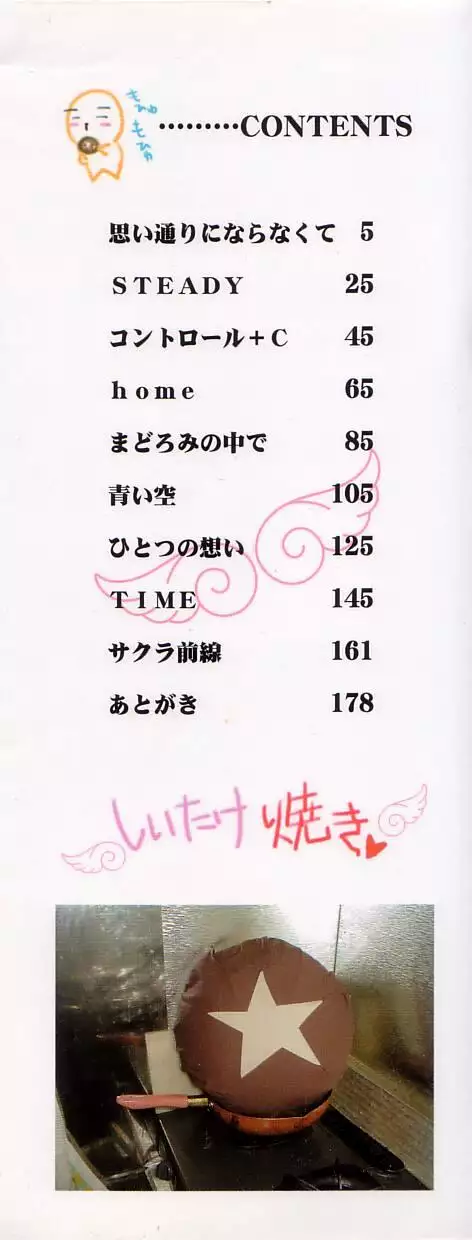 もひゅ
もひゅ
………CONTENTS
思い通りにならなくて 5
STEADY 25
コントロール＋C 45
home 65
まどろみの中で 85
青い空 105
ひとつの想い 125
TIME 145
サクラ前線 161
あとがき 178
しいたけ焼き